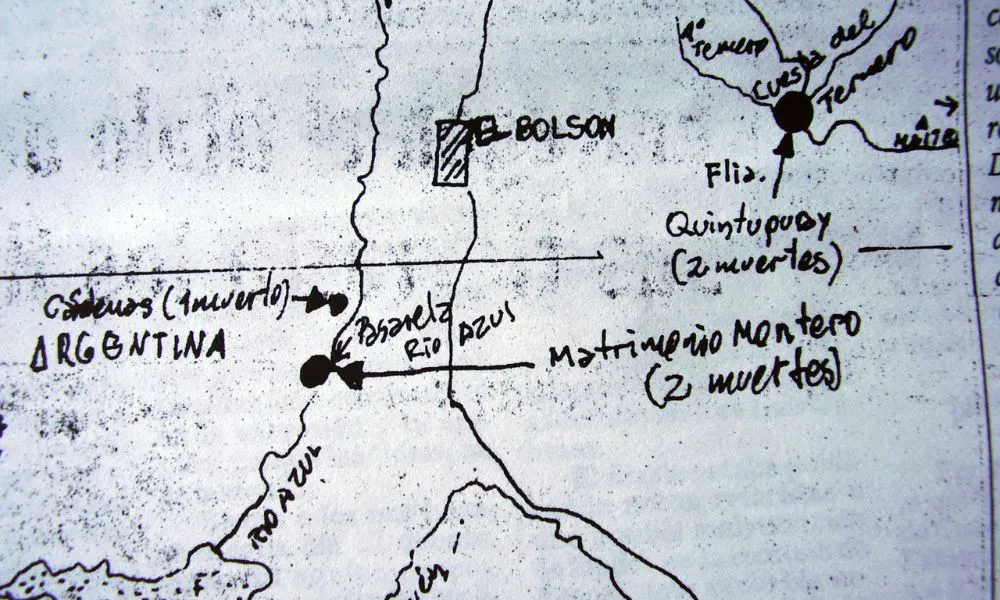 Aº
Ternero
Cuesta del
Ternero
EL BOLSON
MAITEN
Flia.
Quintupuray
(2 muertes)
Cárdenas (1 muerto)
ARGENTINA
Pasarela
RIO AZUL
Matrimonio Montero
(2 muertes)
RIO AZUL